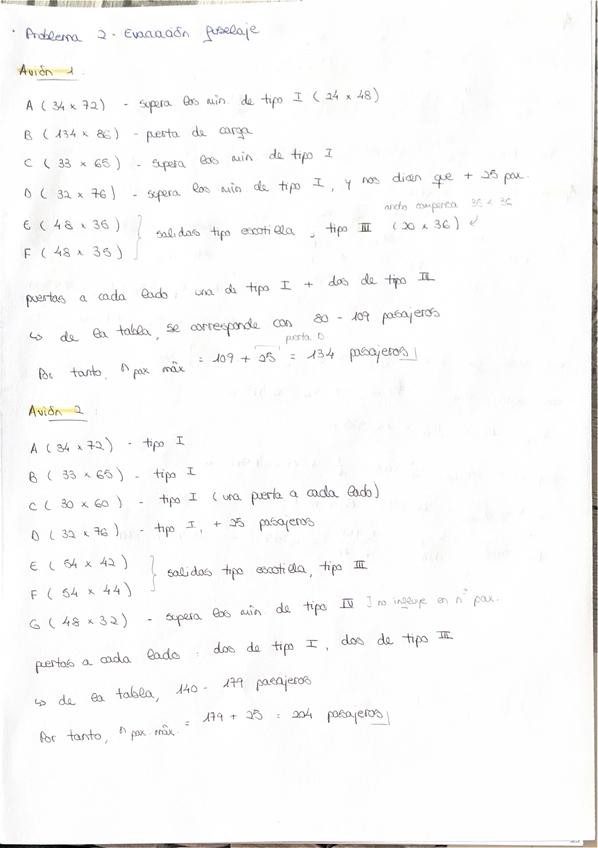 · Problema 2 - Evacuación fuselaje
Avión 1.
A (34 x 72) - supera los min. de tipo I (24 x 48)
B (134 x 86) - puerta de carga
C (33 x 65) - supera los min de tipo I
D (32 x 76) - supera los min. de tipo I, y nos dicen que + 25 pax.
ancho compuerta 36 x 36
E (48 x 36) } salidas tipo escotilla, tipo III (20 x 36)
F (48 x 35)
puertas a cada lado: una de tipo I + dos de tipo III
↳ de la tabla, se corresponde con 80 - 109 pasajeros
puerta D
Por tanto, n pax máx = 109 + 25 = 134 pasajeros
Avión 2.
A (34 x 72) - tipo I
B (33 x 65) - tipo I
C (30 x 60) - tipo I (una puerta a cada lado)
D (32 x 76) - tipo I, + 25 pasajeros
E (54 x 42) } salidas tipo escotilla, tipo III
F (54 x 44)
G (48 x 32) - supera los min de tipo IV ] no influye en nº pax.
puertas a cada lado: dos de tipo I, dos de tipo III
↳ de la tabla, 140 - 179 pasajeros
Por tanto, n pax. máx. = 179 + 25 = 204 pasajeros